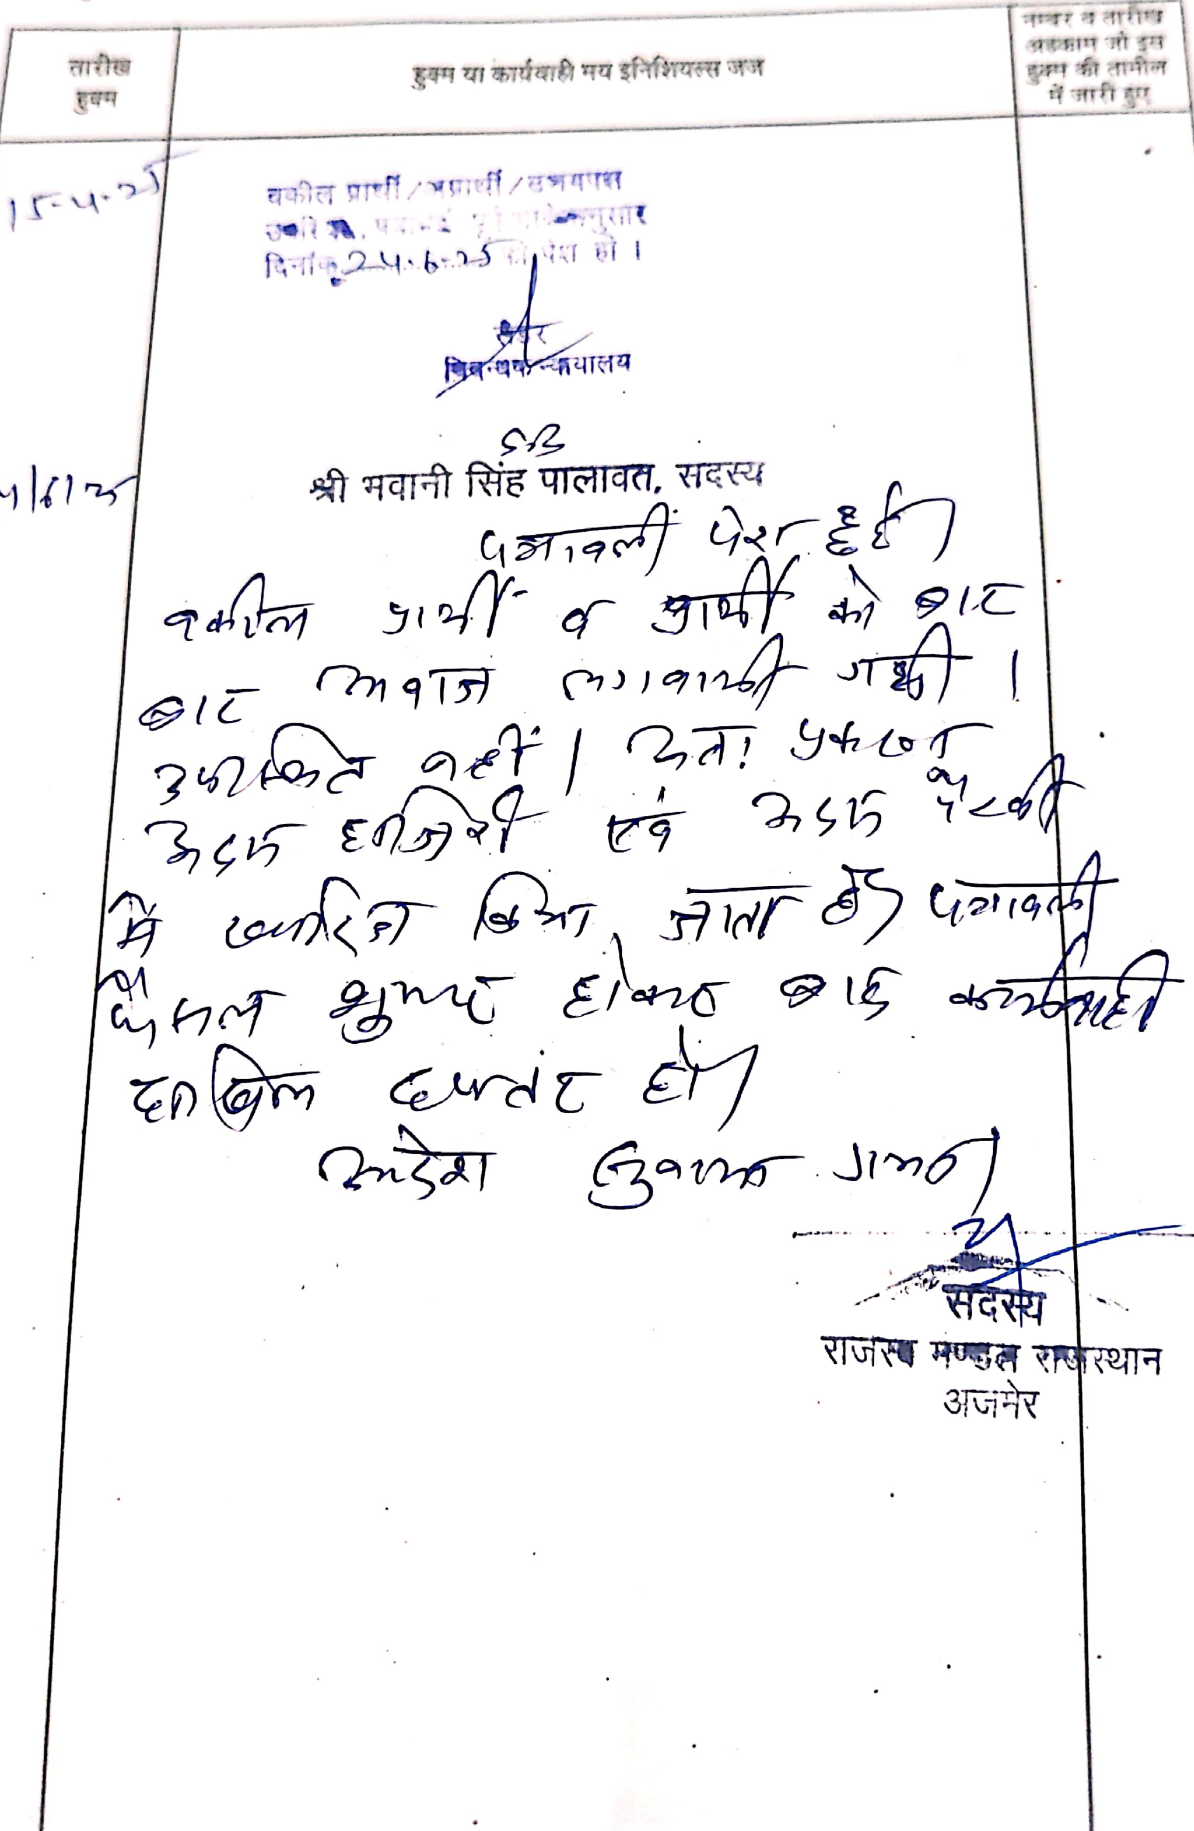 तारीख
हुक्म
हुक्म या कार्यवाही मय इनिशियल्स जज
नम्बर व तारीख
अहकाम जो इस
हुक्म की तामील
में जारी हुए
15-4-25
वकील प्रार्थी/अप्रार्थी/उभयपक्ष
दिनांक 24.6.25 को पेश हो ।
निबन्धक न्यायालय
4/6/25
श्री भवानी सिंह पालावत, सदस्य
पत्रावली पेश हुई।
वकील प्रार्थी व प्रार्थी को बार
बार आवाज लगवायी गयी ।
उपस्थित नहीं। अतः प्रकरण
अदम हाजिरी एवं अदम पैरवी
में खारिज किया जाता है। पत्रावली
फैसल शुमार होकर बाद कार्यवाही
दाखिल दफ्तर हो।
आदेश सुनाया गया।
सदस्य
राजस्व मण्डल राजस्थान
अजमेर